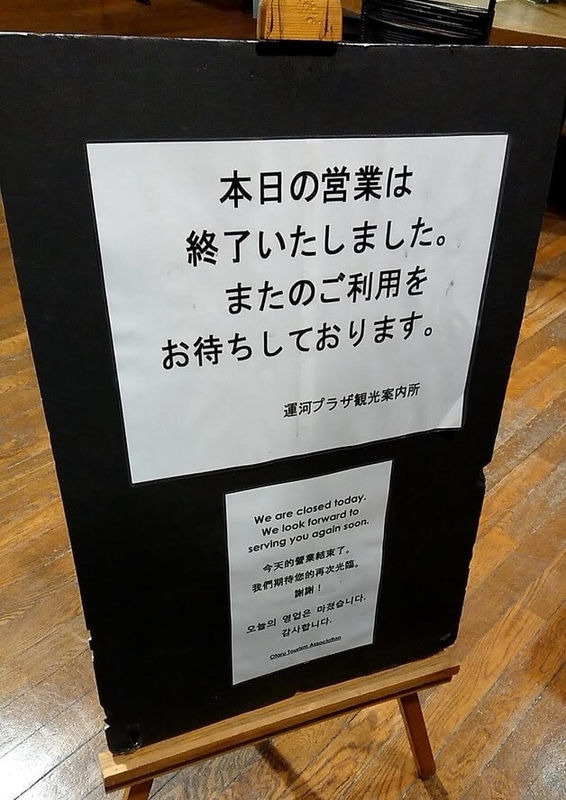 本日の営業は
終了いたしました。
またのご利用を
お待ちしております。
運河プラザ観光案内所
We are closed today.
We look forward to
serving you again soon.
今天的營業結束了。
我們期待您的再次光臨。
謝謝！
오늘의 영업은 마쳤습니다.
감사합니다.
Otaru Tourism Association